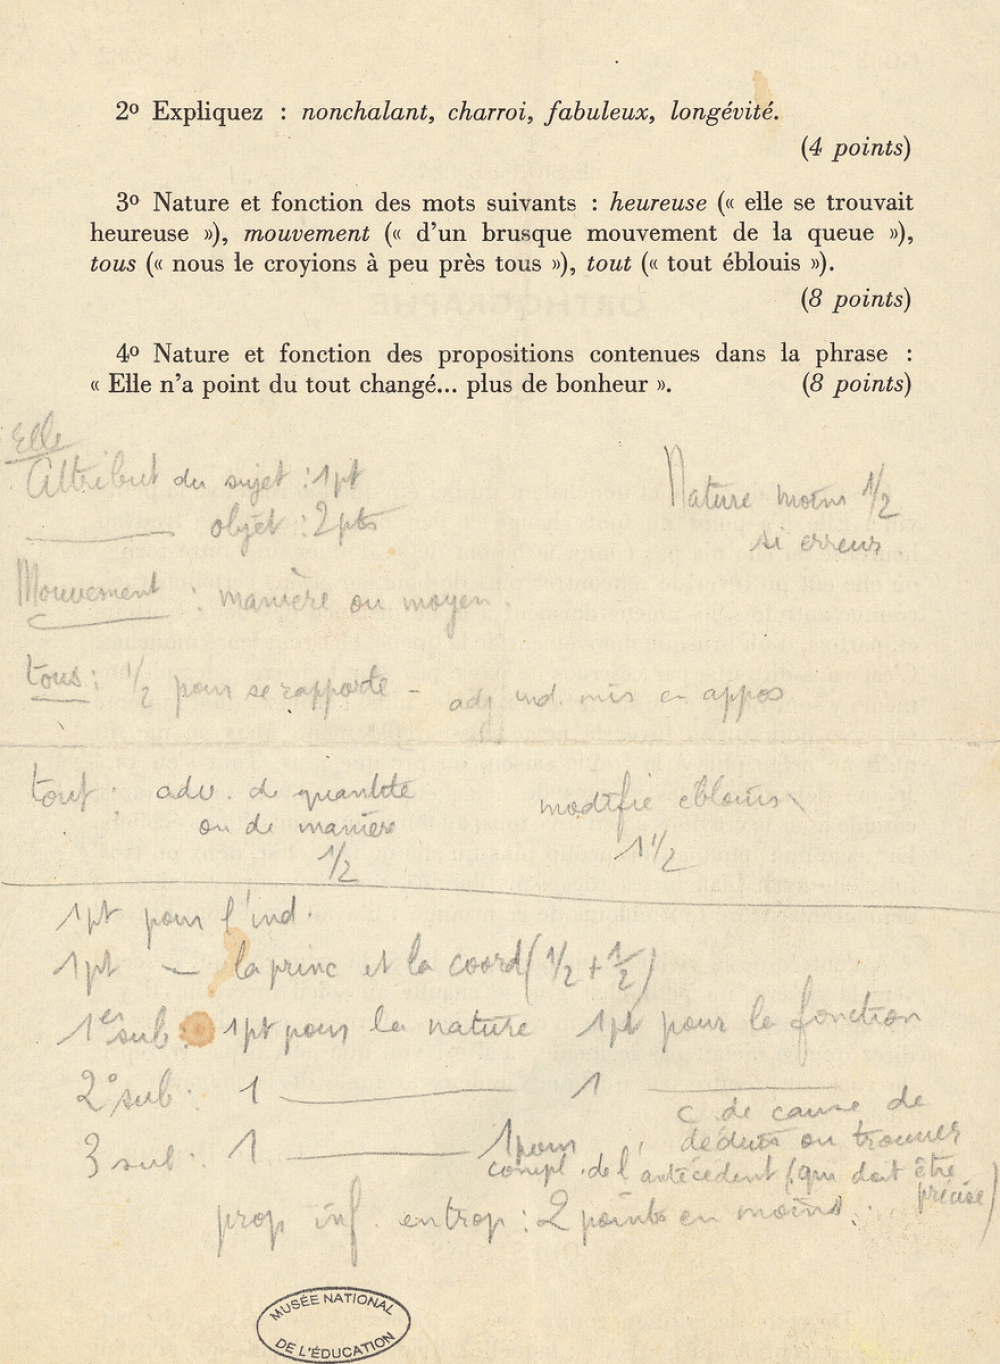 2º Expliquez : nonchalant, charroi, fabuleux, longévité.
(4 points)
3º Nature et fonction des mots suivants : heureuse (« elle se trouvait
heureuse »), mouvement (« d'un brusque mouvement de la queue »),
tous (« nous le croyions à peu près tous »), tout (« tout éblouis »).
(8 points)
4º Nature et fonction des propositions contenues dans la phrase :
« Elle n'a point du tout changé... plus de bonheur ». (8 points)
Elle
Attribut du sujet : 1pt
objet : 2pts
Nature moins 1/2
si erreur
Mouvement : manière ou moyen.
tous : 1/2 pour se rapporte - adj ind. mis en appos
tout : adv. de quantité
ou de manière
1/2
modifie éblouis
1 1/2
1pt pour l'ind.
1pt — la princ et la coord (1/2 + 1/2)
1er sub : 1pt pour la nature 1pt pour la fonction
2º sub : 1 ——— 1 ———
c. de cause de
déduis ou trouver
3 sub : 1 ——— 1 pour
compl. de l'antécédent (qui doit être
précisé)
prop inf. en trop : 2 points en moins.
MUSÉE NATIONAL
DE L'ÉDUCATION